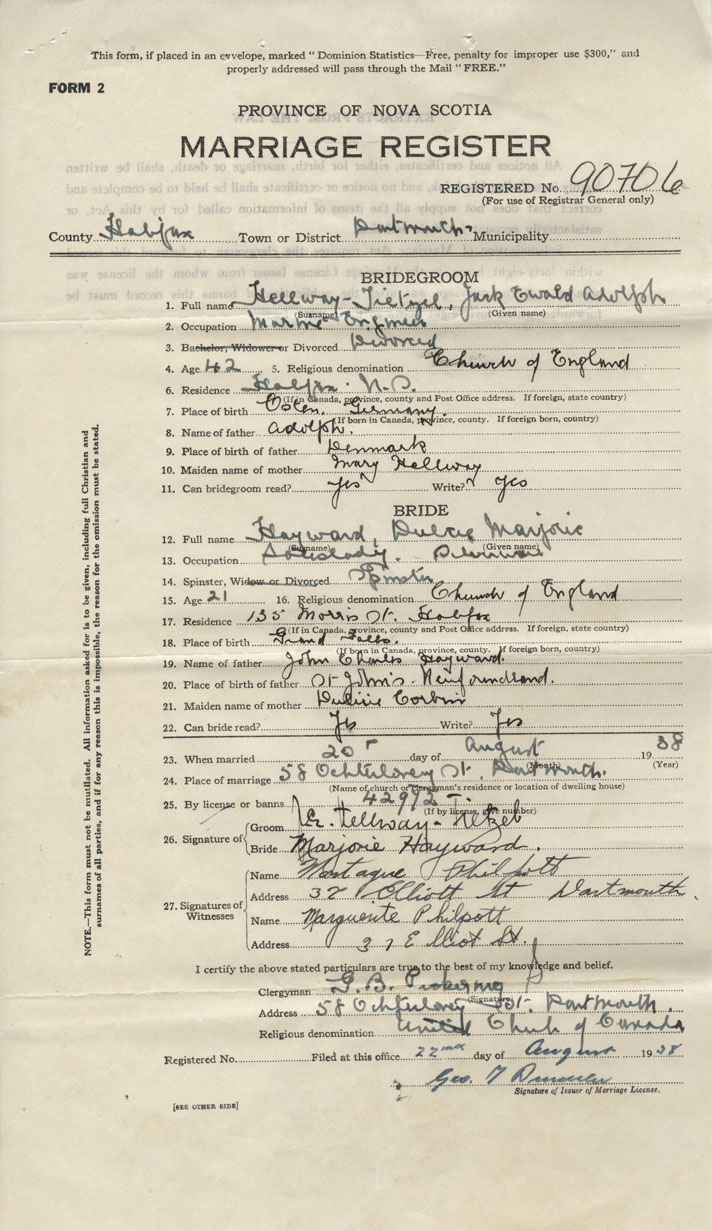 This form, if placed in an envelope, marked "Dominion Statistics—Free, penalty for improper use $300," and
properly addressed will pass through the Mail "FREE."
FORM 2
PROVINCE OF NOVA SCOTIA
MARRIAGE REGISTER
REGISTERED No. 90706
(For use of Registrar General only)
County Halifax Town or District Dartmouth Municipality
BRIDEGROOM
1. Full name Hellway-Tietzel, Jack Ewald Adolph
(Surname) (Given name)
2. Occupation Marine Engineer
3. Bachelor, Widower or Divorced Divorced
4. Age 42 5. Religious denomination Church of England
6. Residence Halifax N.S.
(If in Canada, province, county and Post Office address. If foreign, state country)
7. Place of birth Germany
(If born in Canada, province, county. If foreign born, country)
8. Name of father Adolph
9. Place of birth of father Denmark
10. Maiden name of mother Mary Hellway
11. Can bridegroom read? yes Write? yes
BRIDE
12. Full name Hayward, Dulcie Marjorie
(Surname) (Given name)
13. Occupation Saleslady
14. Spinster, Widow or Divorced Spinster
15. Age 21 16. Religious denomination Church of England
17. Residence 135 Morris St. Halifax
(If in Canada, province, county and Post Office address. If foreign, state country)
18. Place of birth Grand Falls
(If born in Canada, province, county. If foreign born, country)
19. Name of father John Charles Hayward
20. Place of birth of father St John's Newfoundland.
21. Maiden name of mother Corbin
22. Can bride read? Yes Write? Yes
23. When married 20 day of August 1938
(Year)
24. Place of marriage 58 Ochterloney St. Dartmouth.
(Name of church or clergyman's residence or location of dwelling house)
25. By license or banns 42992
(If by license, give number)
26. Signature of
Groom E. Hellway-Tietzel
Bride Marjorie Hayward.
27. Signatures of Witnesses
Name Montague Philpott
Address 37 Elliott St Dartmouth.
Name Marguerite Philpott
Address 37 Elliot St.
I certify the above stated particulars are true to the best of my knowledge and belief.
Clergyman G. B. Pickering
(Signature)
Address 58 Ochterloney St. Dartmouth.
Religious denomination United Church of Canada
Registered No. Filed at this office 22nd day of August 1938
Geo.
Signature of Issuer of Marriage License.
[SEE OTHER SIDE]
NOTE.—This form must not be mutilated. All information asked for is to be given, including full Christian and
surnames of all parties, and if for any reason this is impossible, the reason for the omission must be stated.